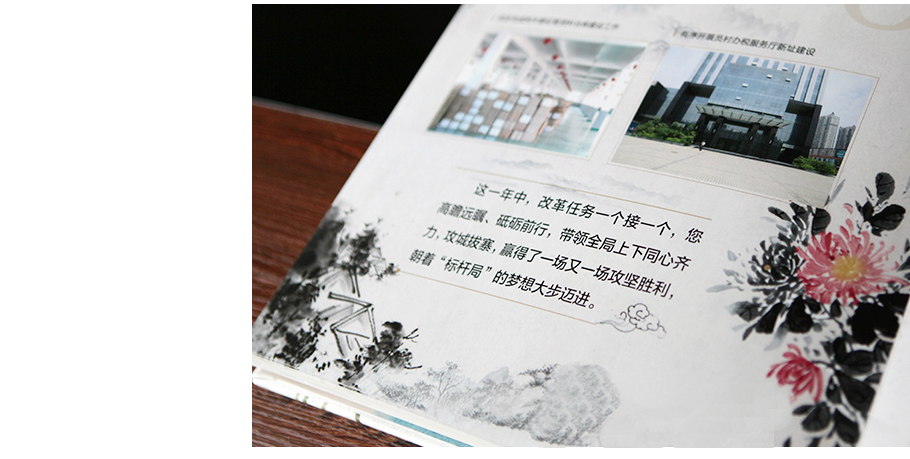 办税服务厅新址建设
这一年中，改革任务一个接一个，您
高瞻远瞩、砥砺前行，带领全局上下同心齐
力，攻城拔寨，赢得了一场又一场攻坚胜利，
朝着“标杆局”的梦想大步迈进。